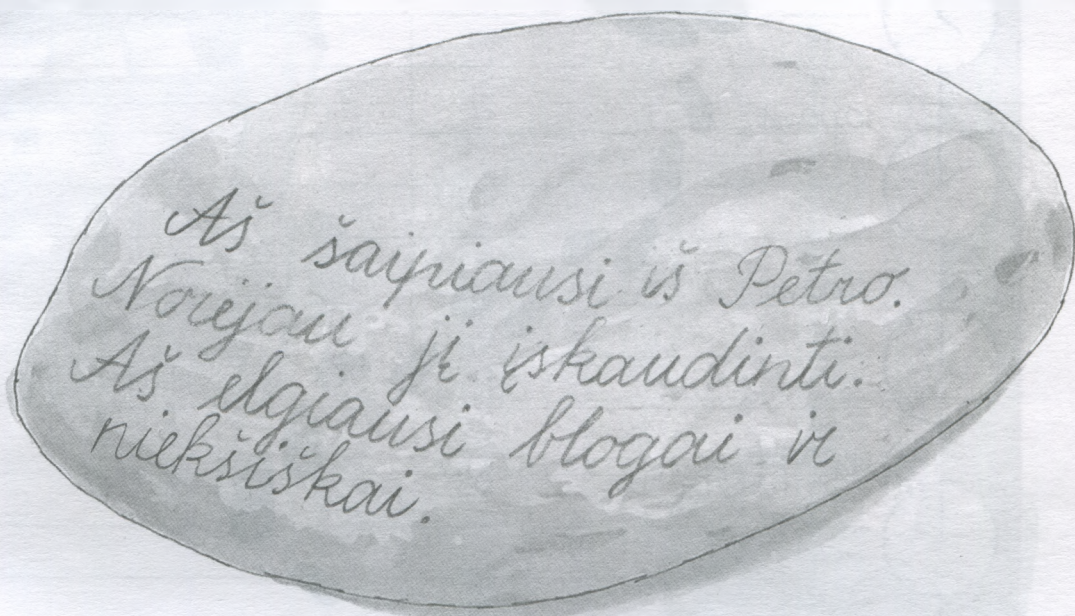 Aš šaipiausi iš Petro.
Norėjau jį įskaudinti.
Aš elgiausi blogai ir
niekšiškai.